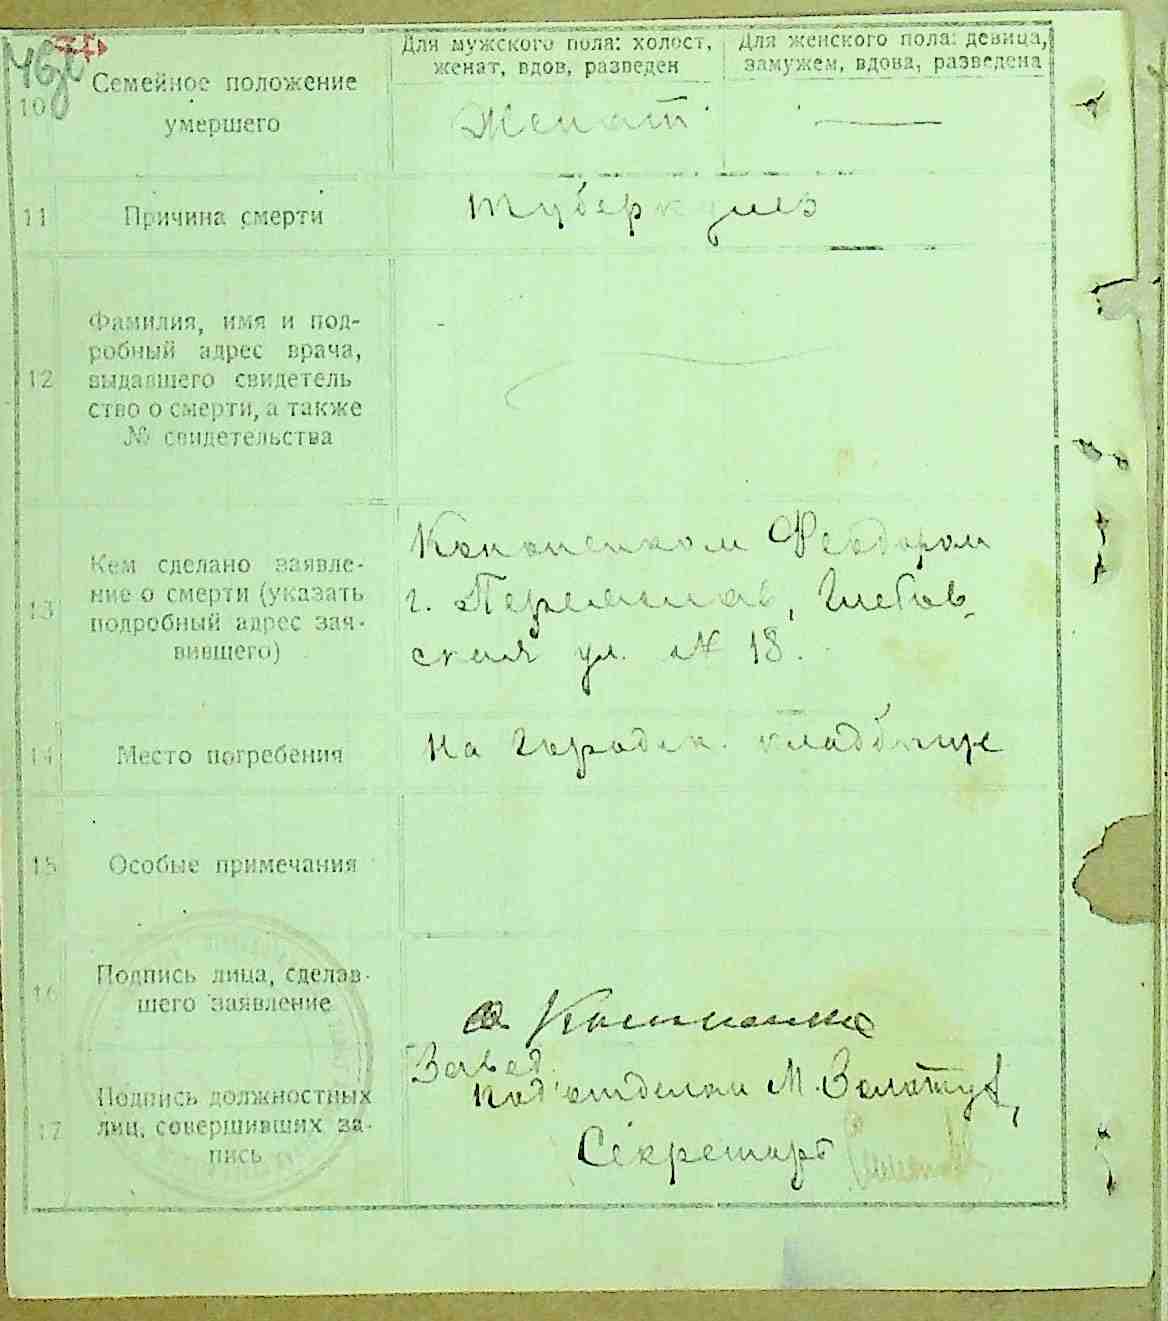 Для мужского пола: холост,
женат, вдов, разведен
Для женского пола: девица,
замужем, вдова, разведена
10
Семейное положение
умершего
Женат
11
Причина смерти
туберкулез
12
Фамилия, имя и под-
робный адрес врача,
выдавшего свидетель
ство о смерти, а также
№ свидетельства
13
Кем сделано заявле-
ние о смерти (указать
подробный адрес зая-
вившего)
Кононенком Феодором
г. Переяслав, Глебов-
ская ул. № 18.
14
Место погребения
на городск. кладбище
15
Особые примечания
16
Подпись лица, сделав-
шего заявление
17
Подпись должностных
лиц, совершивших за-
пись
Завед.
под'отделом М.
Секретарь